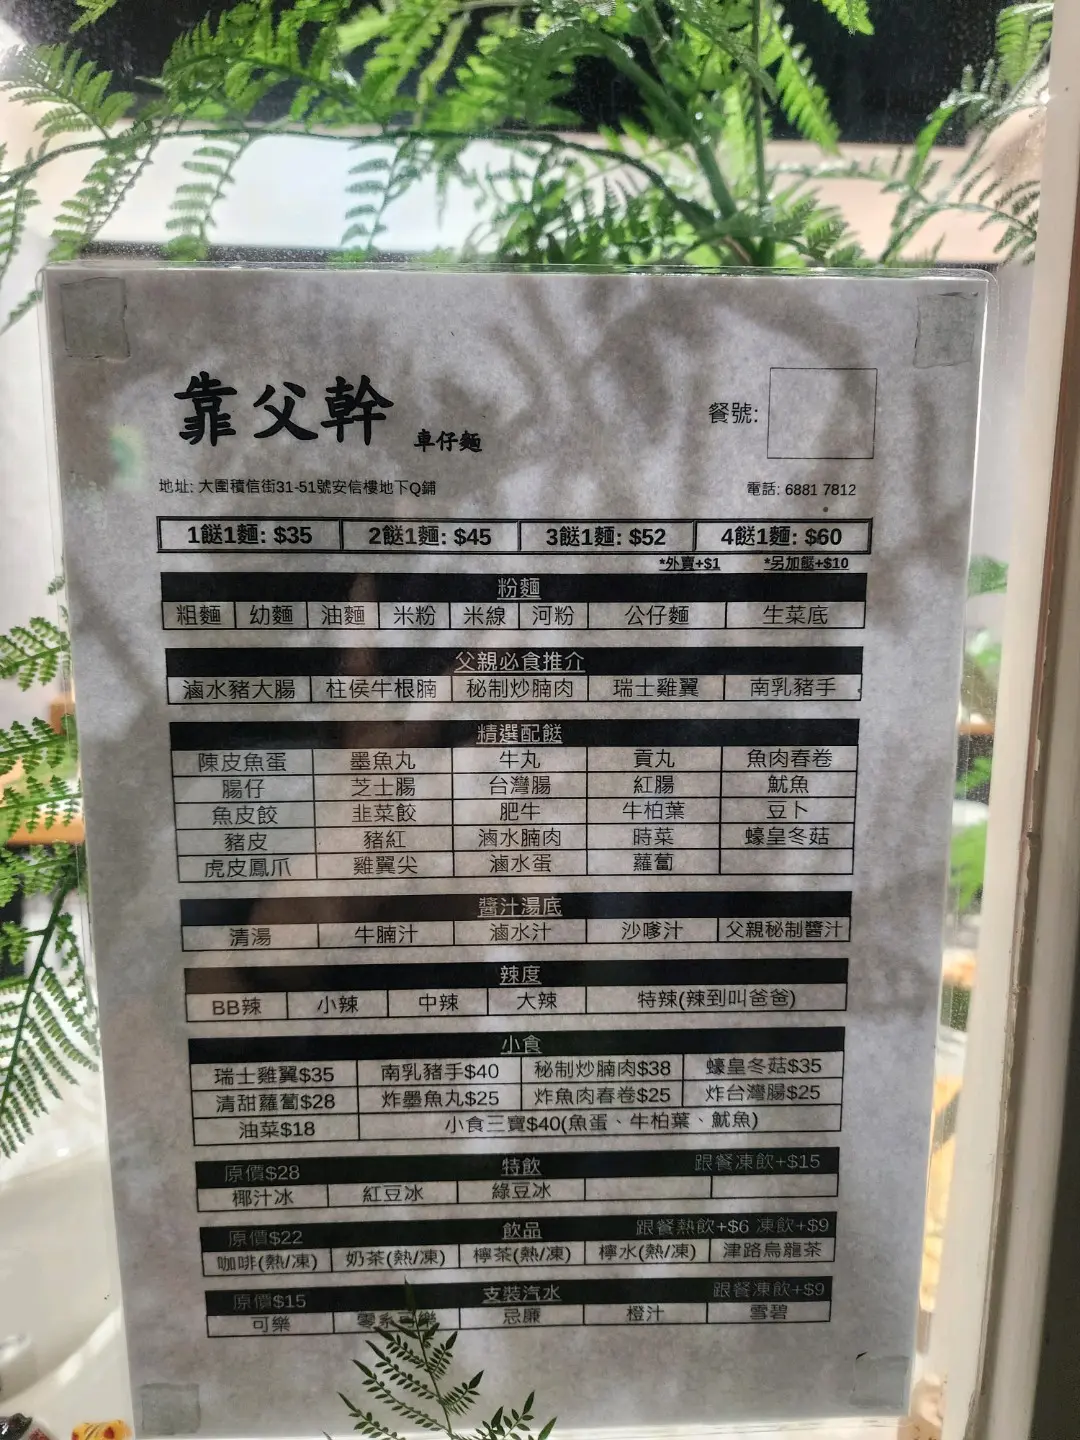 靠父幹 車仔麵
餐號:
地址: 大圍積信街31-51號安信樓地下Q鋪 電話: 6881 7812
1餸1麵: $35 2餸1麵: $45 3餸1麵: $52 4餸1麵: $60
*外賣+$1 *另加餸+$10
粉麵
粗麵 幼麵 油麵 米粉 米線 河粉 公仔麵 生菜底
父親必食推介
滷水豬大腸 柱侯牛根腩 秘制炒腩肉 瑞士雞翼 南乳豬手
精選配餸
陳皮魚蛋 墨魚丸 牛丸 貢丸 魚肉春卷
腸仔 芝士腸 台灣腸 紅腸 魷魚
魚皮餃 韭菜餃 肥牛 牛柏葉 豆卜
豬皮 豬紅 滷水腩肉 時菜 蠔皇冬菇
虎皮鳳爪 雞翼尖 滷水蛋 蘿蔔
醬汁湯底
清湯 牛腩汁 滷水汁 沙嗲汁 父親秘制醬汁
辣度
BB辣 小辣 中辣 大辣 特辣(辣到叫爸爸)
小食
瑞士雞翼$35 南乳豬手$40 秘制炒腩肉$38 蠔皇冬菇$35
清甜蘿蔔$28 炸墨魚丸$25 炸魚肉春卷$25 炸台灣腸$25
油菜$18 小食三寶$40(魚蛋、牛柏葉、魷魚)
原價$28 特飲 跟餐凍飲+$15
椰汁冰 紅豆冰 綠豆冰
原價$22 飲品 跟餐熱飲+$6 凍飲+$9
咖啡(熱/凍) 奶茶(熱/凍) 檸茶(熱/凍) 檸水(熱/凍) 津路烏龍茶
原價$15 支裝汽水 跟餐凍飲+$9
可樂 零系可樂 忌廉 橙汁 雪碧